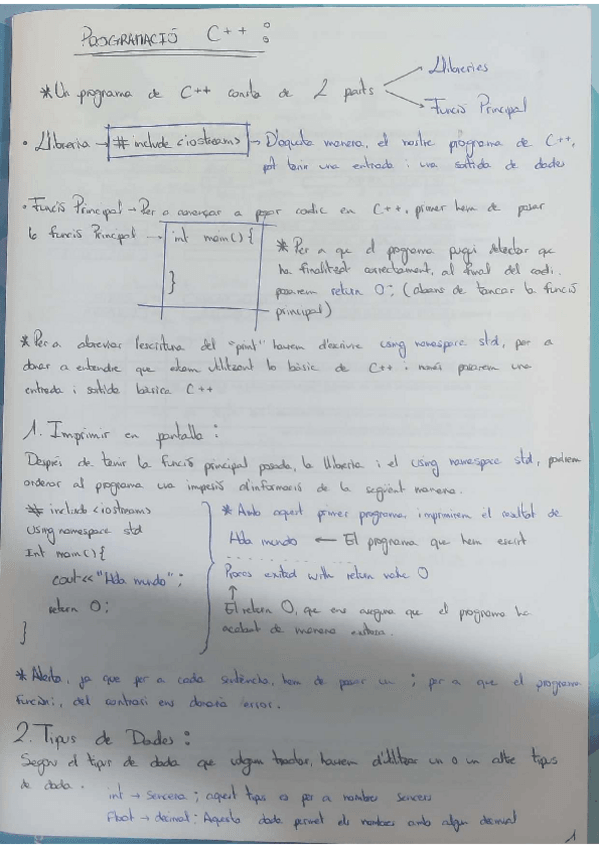 PROGRAMACIÓ C++:
* Un programa de C++ consta de 2 parts
Llibreries
Funció Principal
• Llibreria → #include <iostream> → D'aquesta manera, el nostre programa de C++,
pot tenir una entrada i una sortida de dades
• Funció Principal → Per a començar a posar codic en C++, primer hem de posar
la funció Principal → int main(){
}
* Per a que el programa pugui detectar que
ha finalitzat correctament, al final del codi
posarem return 0; (abans de tancar la funció
principal)
* Per a abreviar l'escritura del "print" haurem d'escriure using namespace std, per a
donar a entendre que estem utilitzant lo bàsic de C++ i només posarem una
entrada i sortida bàsica C++
1. Imprimir en pantalla:
Després de tenir la funció principal posada, la llibreria i el using namespace std, podrem
ordenar al programa una impresió d'informació de la següent manera.
#include <iostream>
Using namespace std
Int main(){
cout<<"Hola mundo";
return 0;
}
* Amb aquest primer programa, imprimirem el resultat de
Hola mundo ← El programa que hem escrit
Proces exited with return value 0
↑
El return 0, que ens asegura que el programa ha
acabat de manera exitosa.
* Alerta, ja que per a cada sentència, hem de posar un ; per a que el programa
funcioni, del contrari ens donaria error.
2. Tipus de Dades:
Segons el tipus de dada que volguem tractar, haurem d'utilitzar un o un altre tipus
de dada.
int → Sencera; aquest tipus es per a nombres sencers
Float → decimal: Aquesta dada permet els nombres amb algun decimal
1